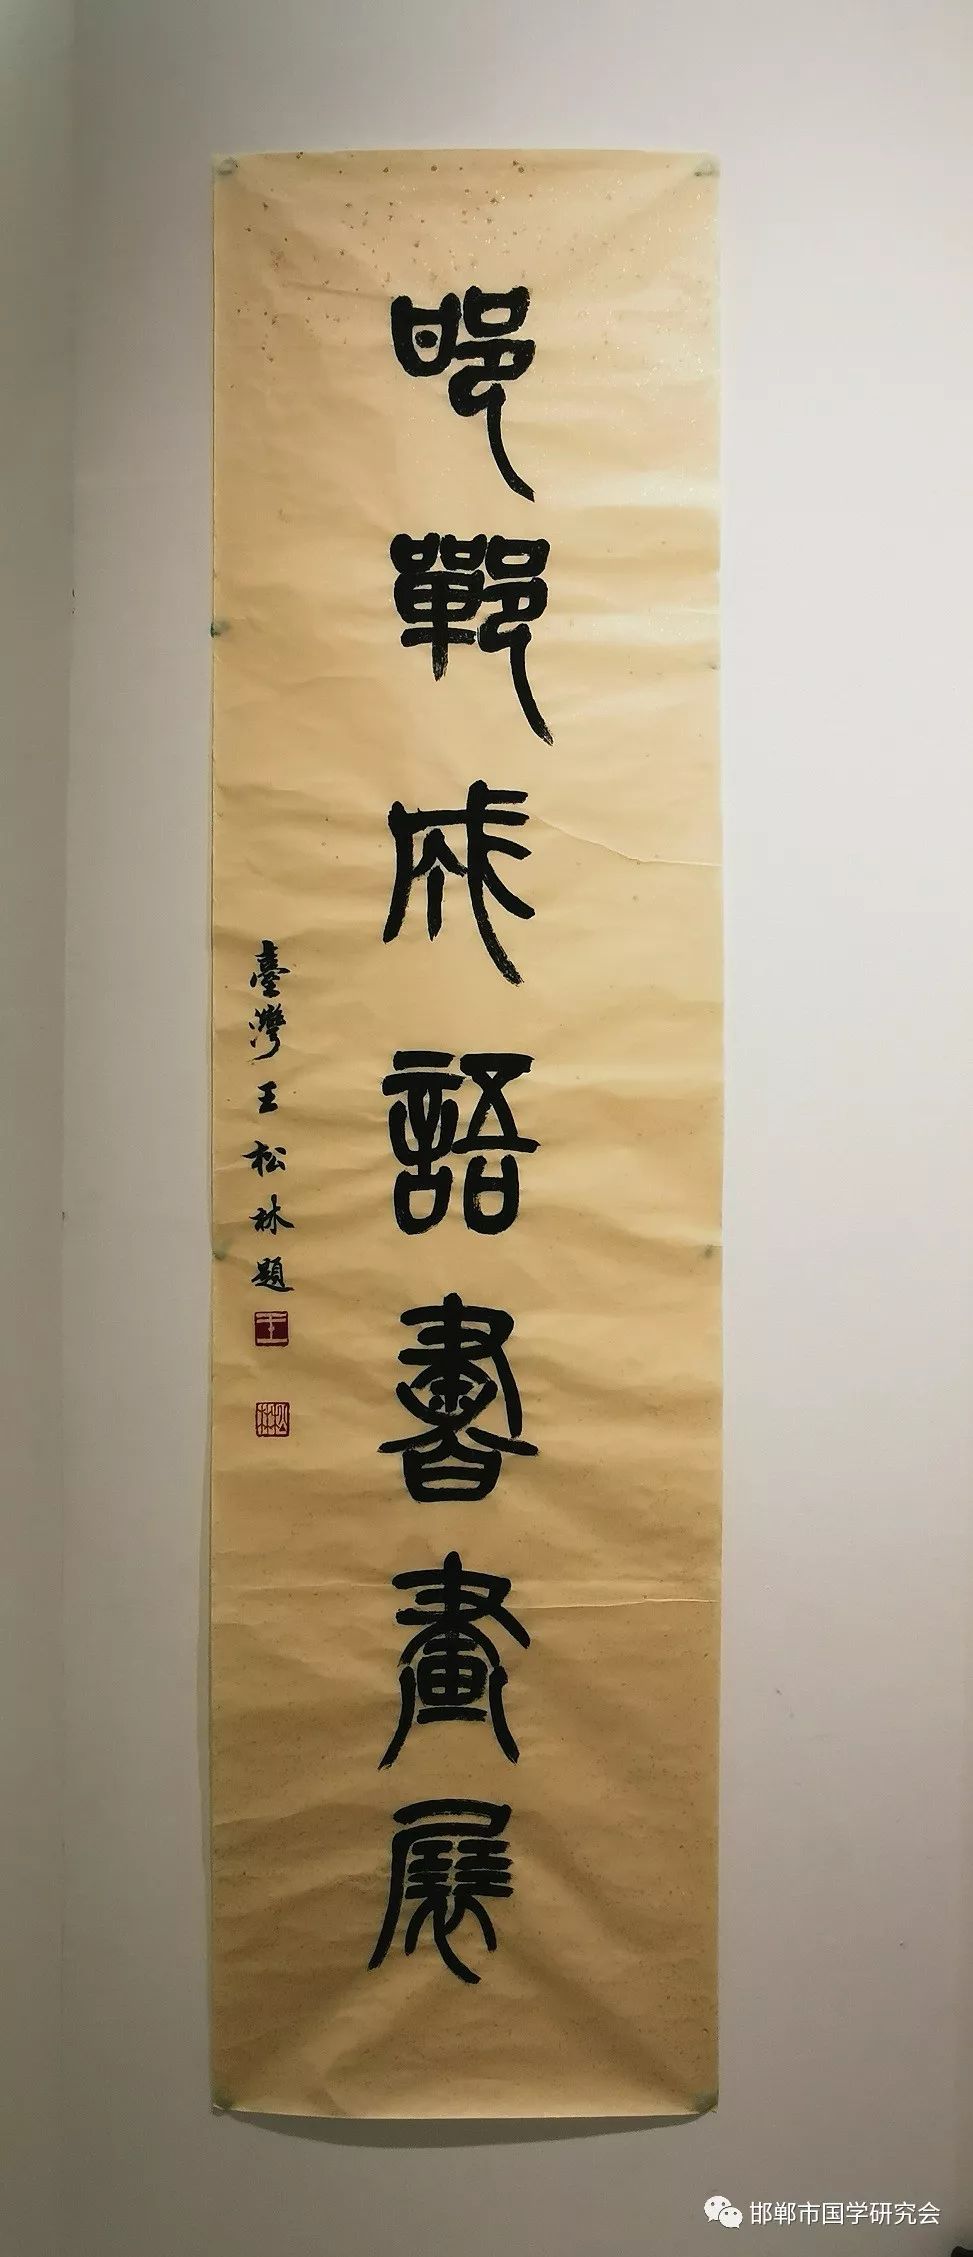 邯鄲成語書畫展
臺灣王松林題
王
松林
邯郸市国学研究会